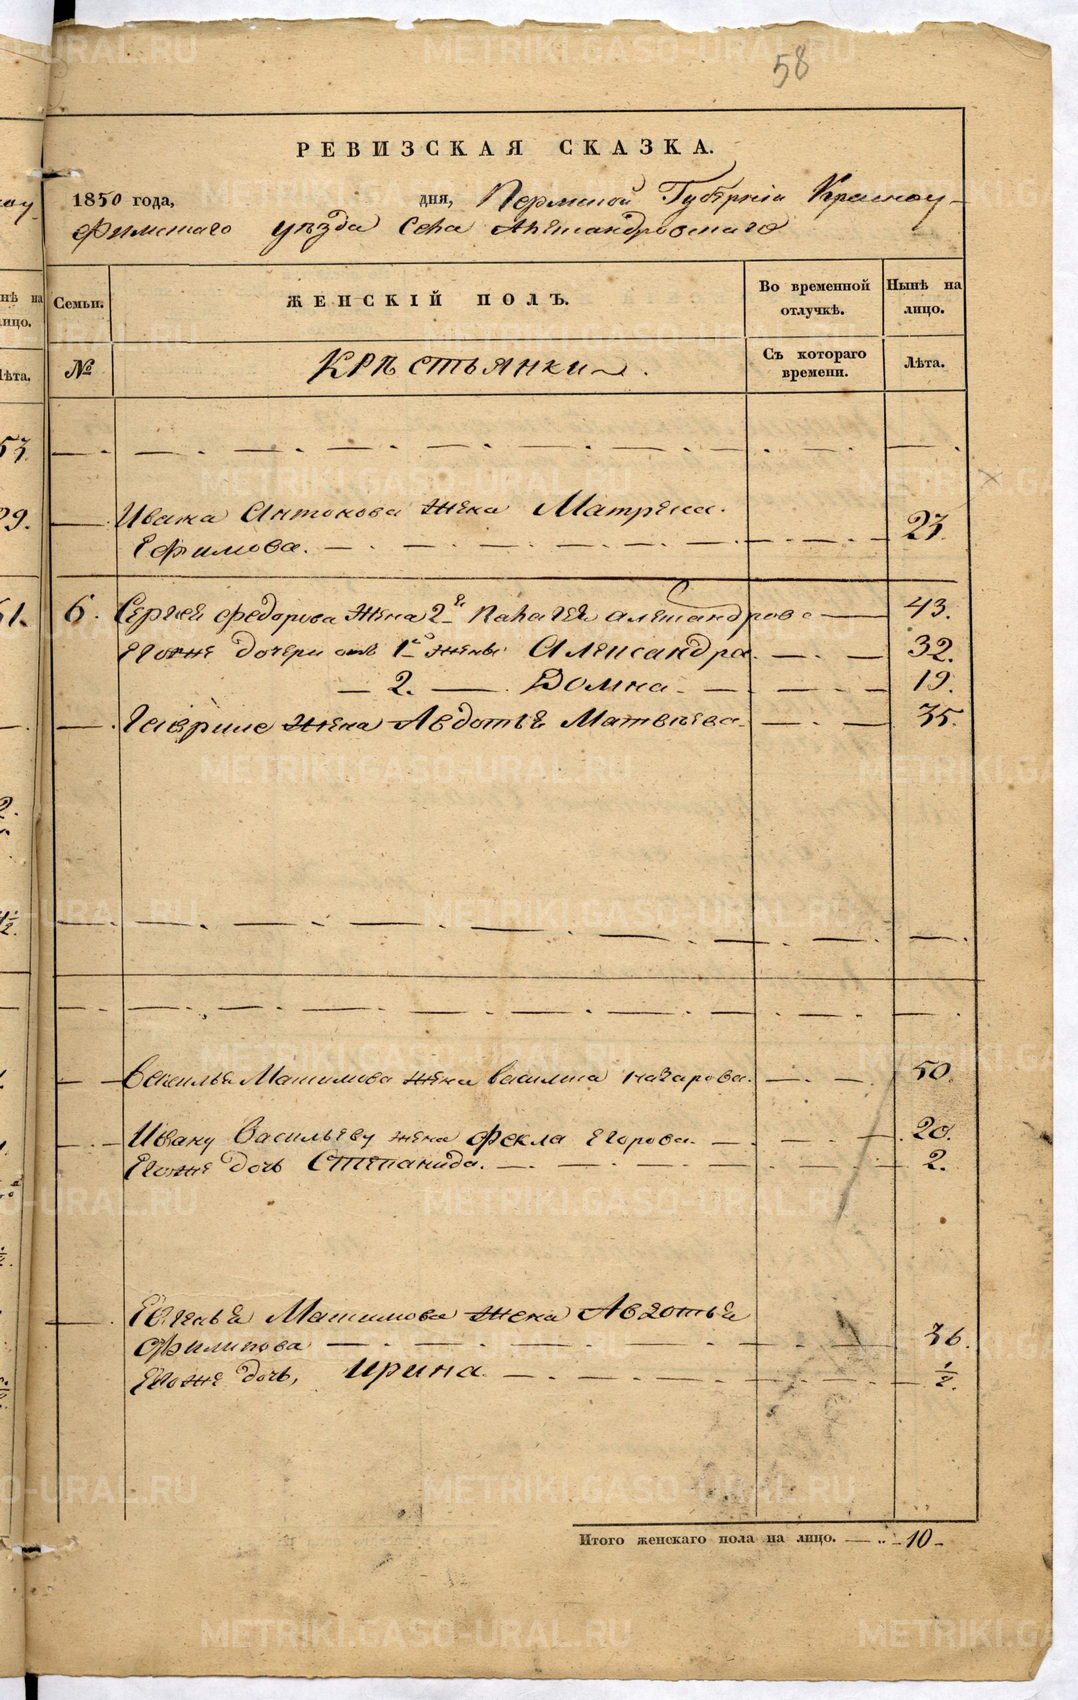 58
РЕВИЗСКАЯ СКАЗКА.
1850 года, дня, Пермской Губернiи Красноу-
фимскаго уѣзда Села Александровскаго
Семьи. ЖЕНСКIЙ ПОЛЪ. Во временной отлучкѣ. Нынѣ на лицо.
№ Крѣстьянки. Съ котораго времени. Лѣта.
Ивана Антонова жена Матрена
Ефимова. 23.
6. Сергея Федорова жена 2я Пелагея Александрова 43.
Егоже дочери отъ 1й жены Александра 32.
2. Домна 19.
Гавриле жена Авдотья Матвѣева 35.
Василья Максимова жена Василиса Назарова. 50.
Ивану Васильеву жена Фекла Егорова. 20.
Егоже дочь Степанида. 2.
Максимова жена Авдотья
Филипова 36.
Егоже дочь, Ирина 1/2.
Итого женскаго пола на лицо. 10
METRIKI.GASO-URAL.RU